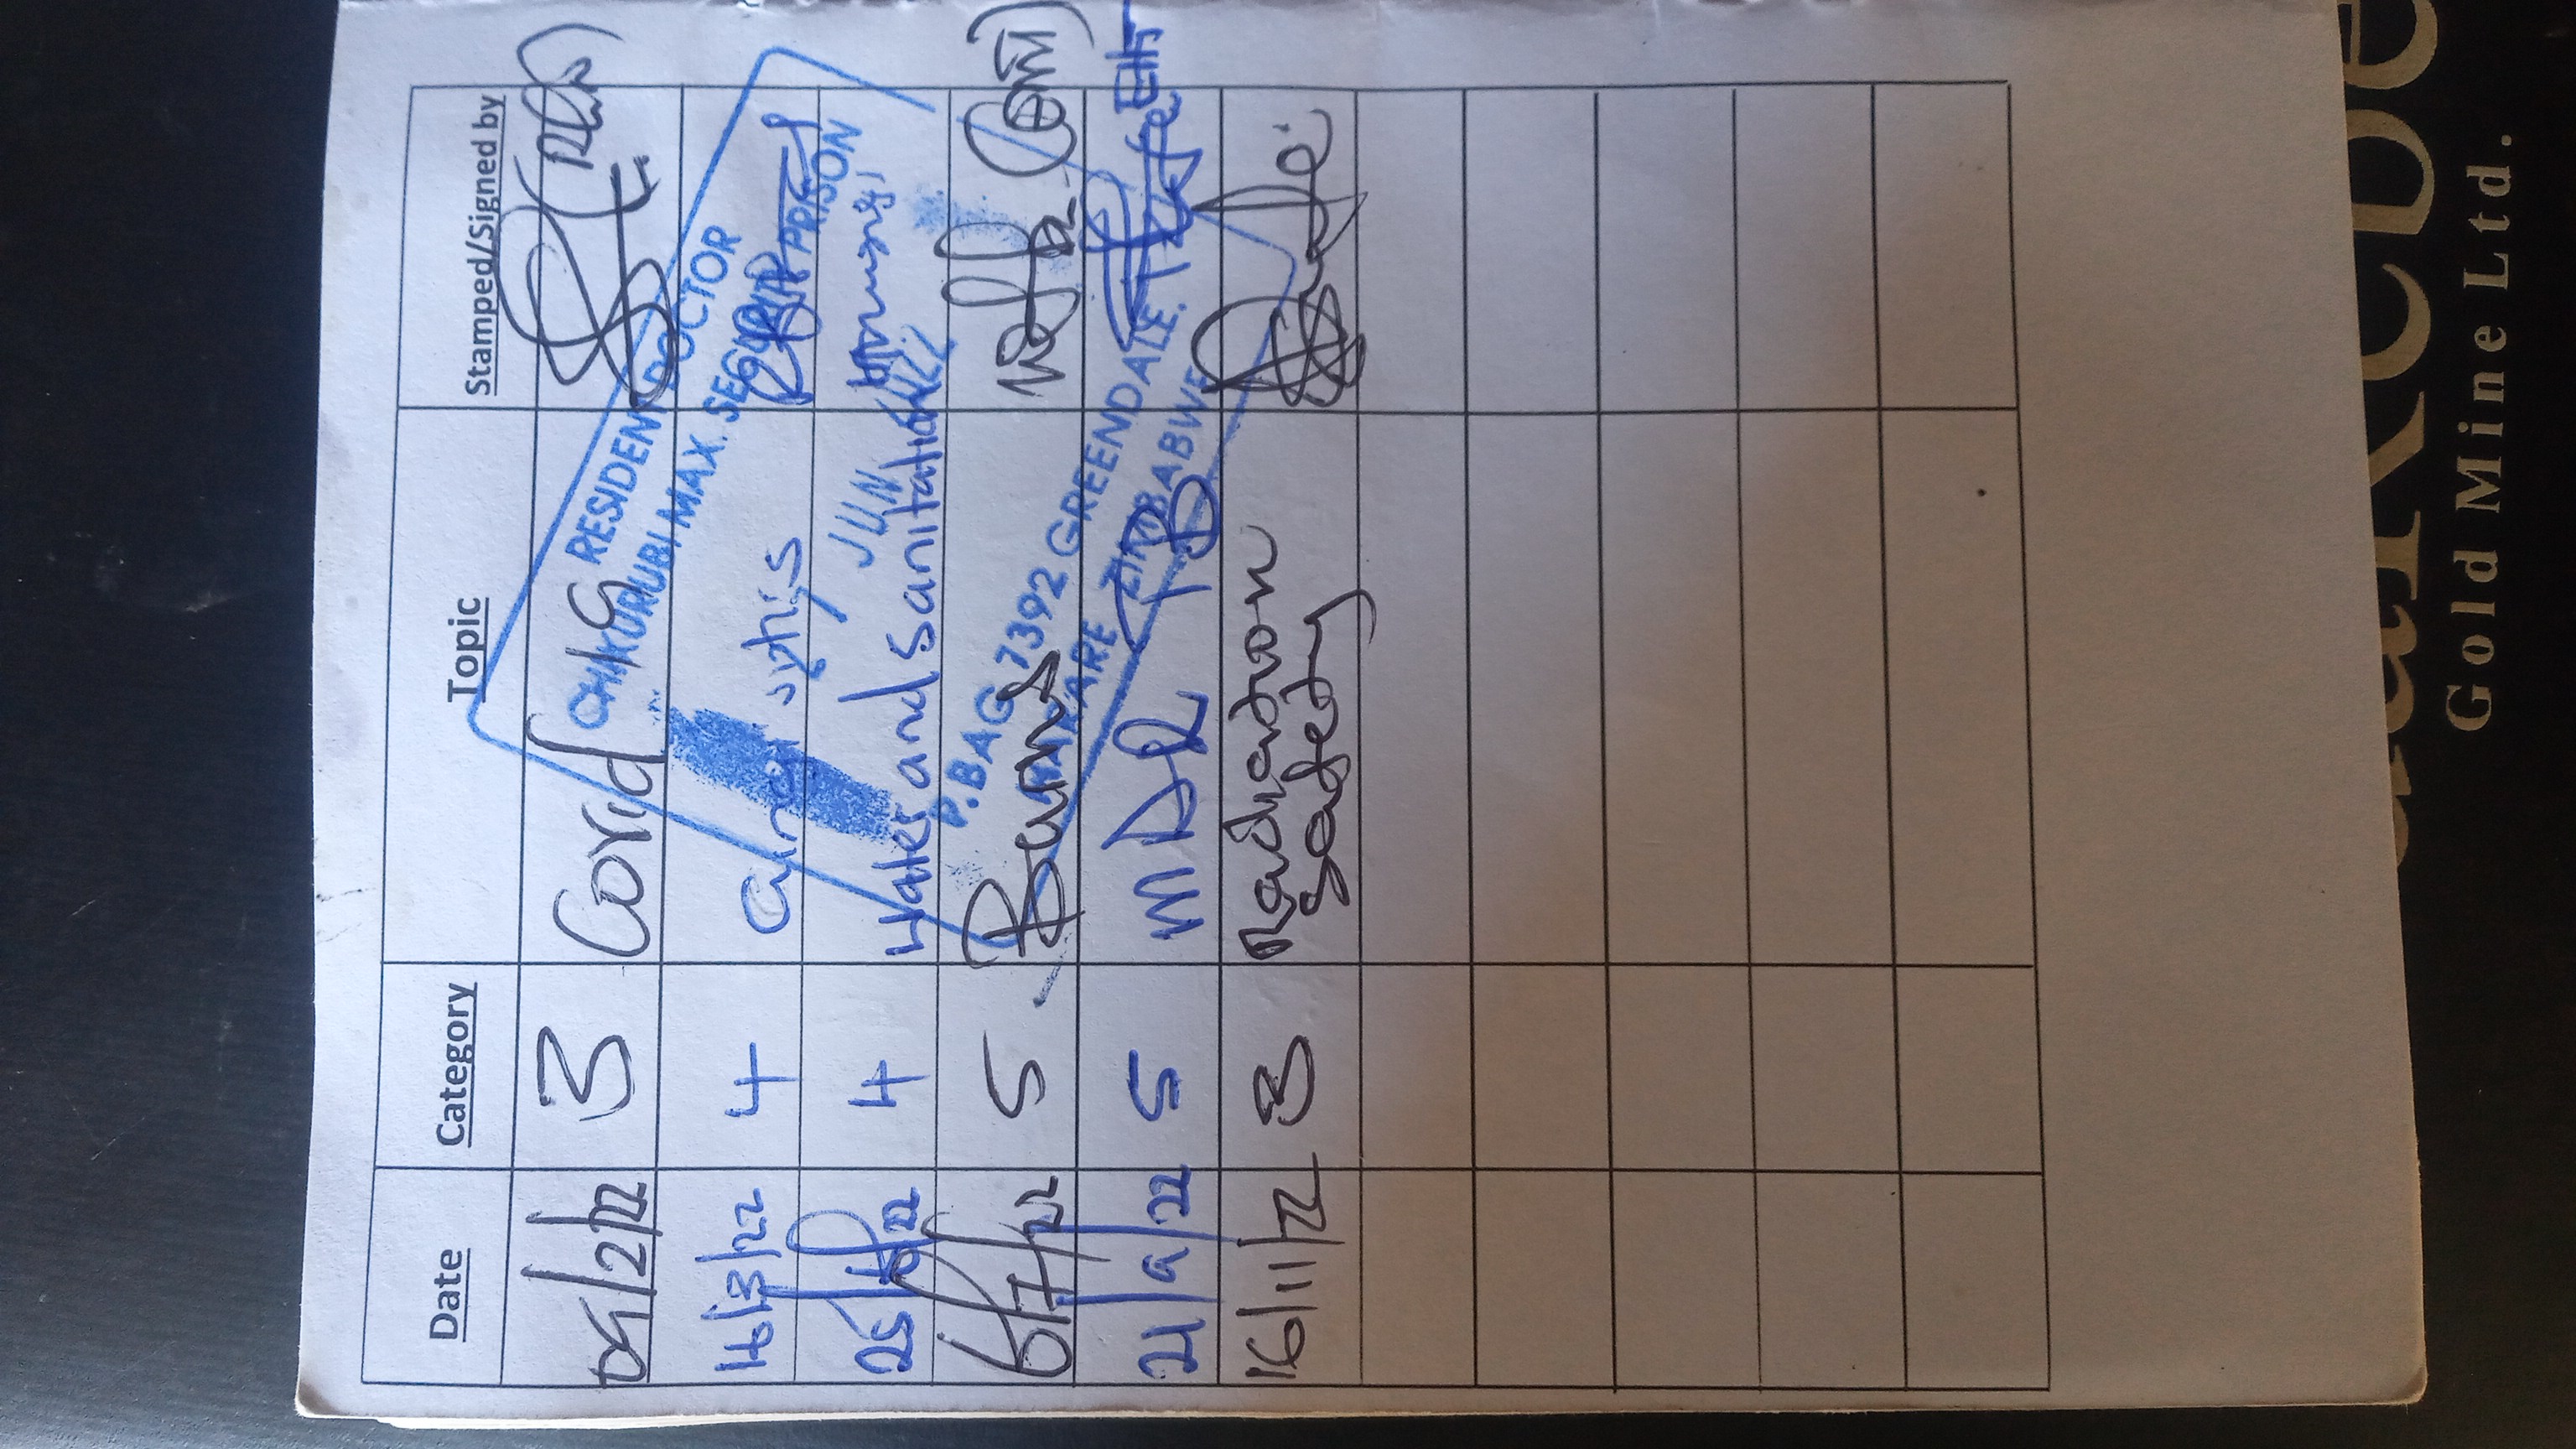 Date Category Topic Stamped/Signed by
09/2/22 3 Covid 19
16/3/22 4
25/5/22 4 Water and Sanitation
6/7/22 5 Burns
21/9/22 5 MDR TB
16/11/22 3 Radiation
safety
RESIDENT DOCTOR
CHIKURUBI MAX. SECURITY PRISON
JUN
P.BAG 7392 GREENDALE.
HARARE ZIMBABWE
Gold Mine Ltd.